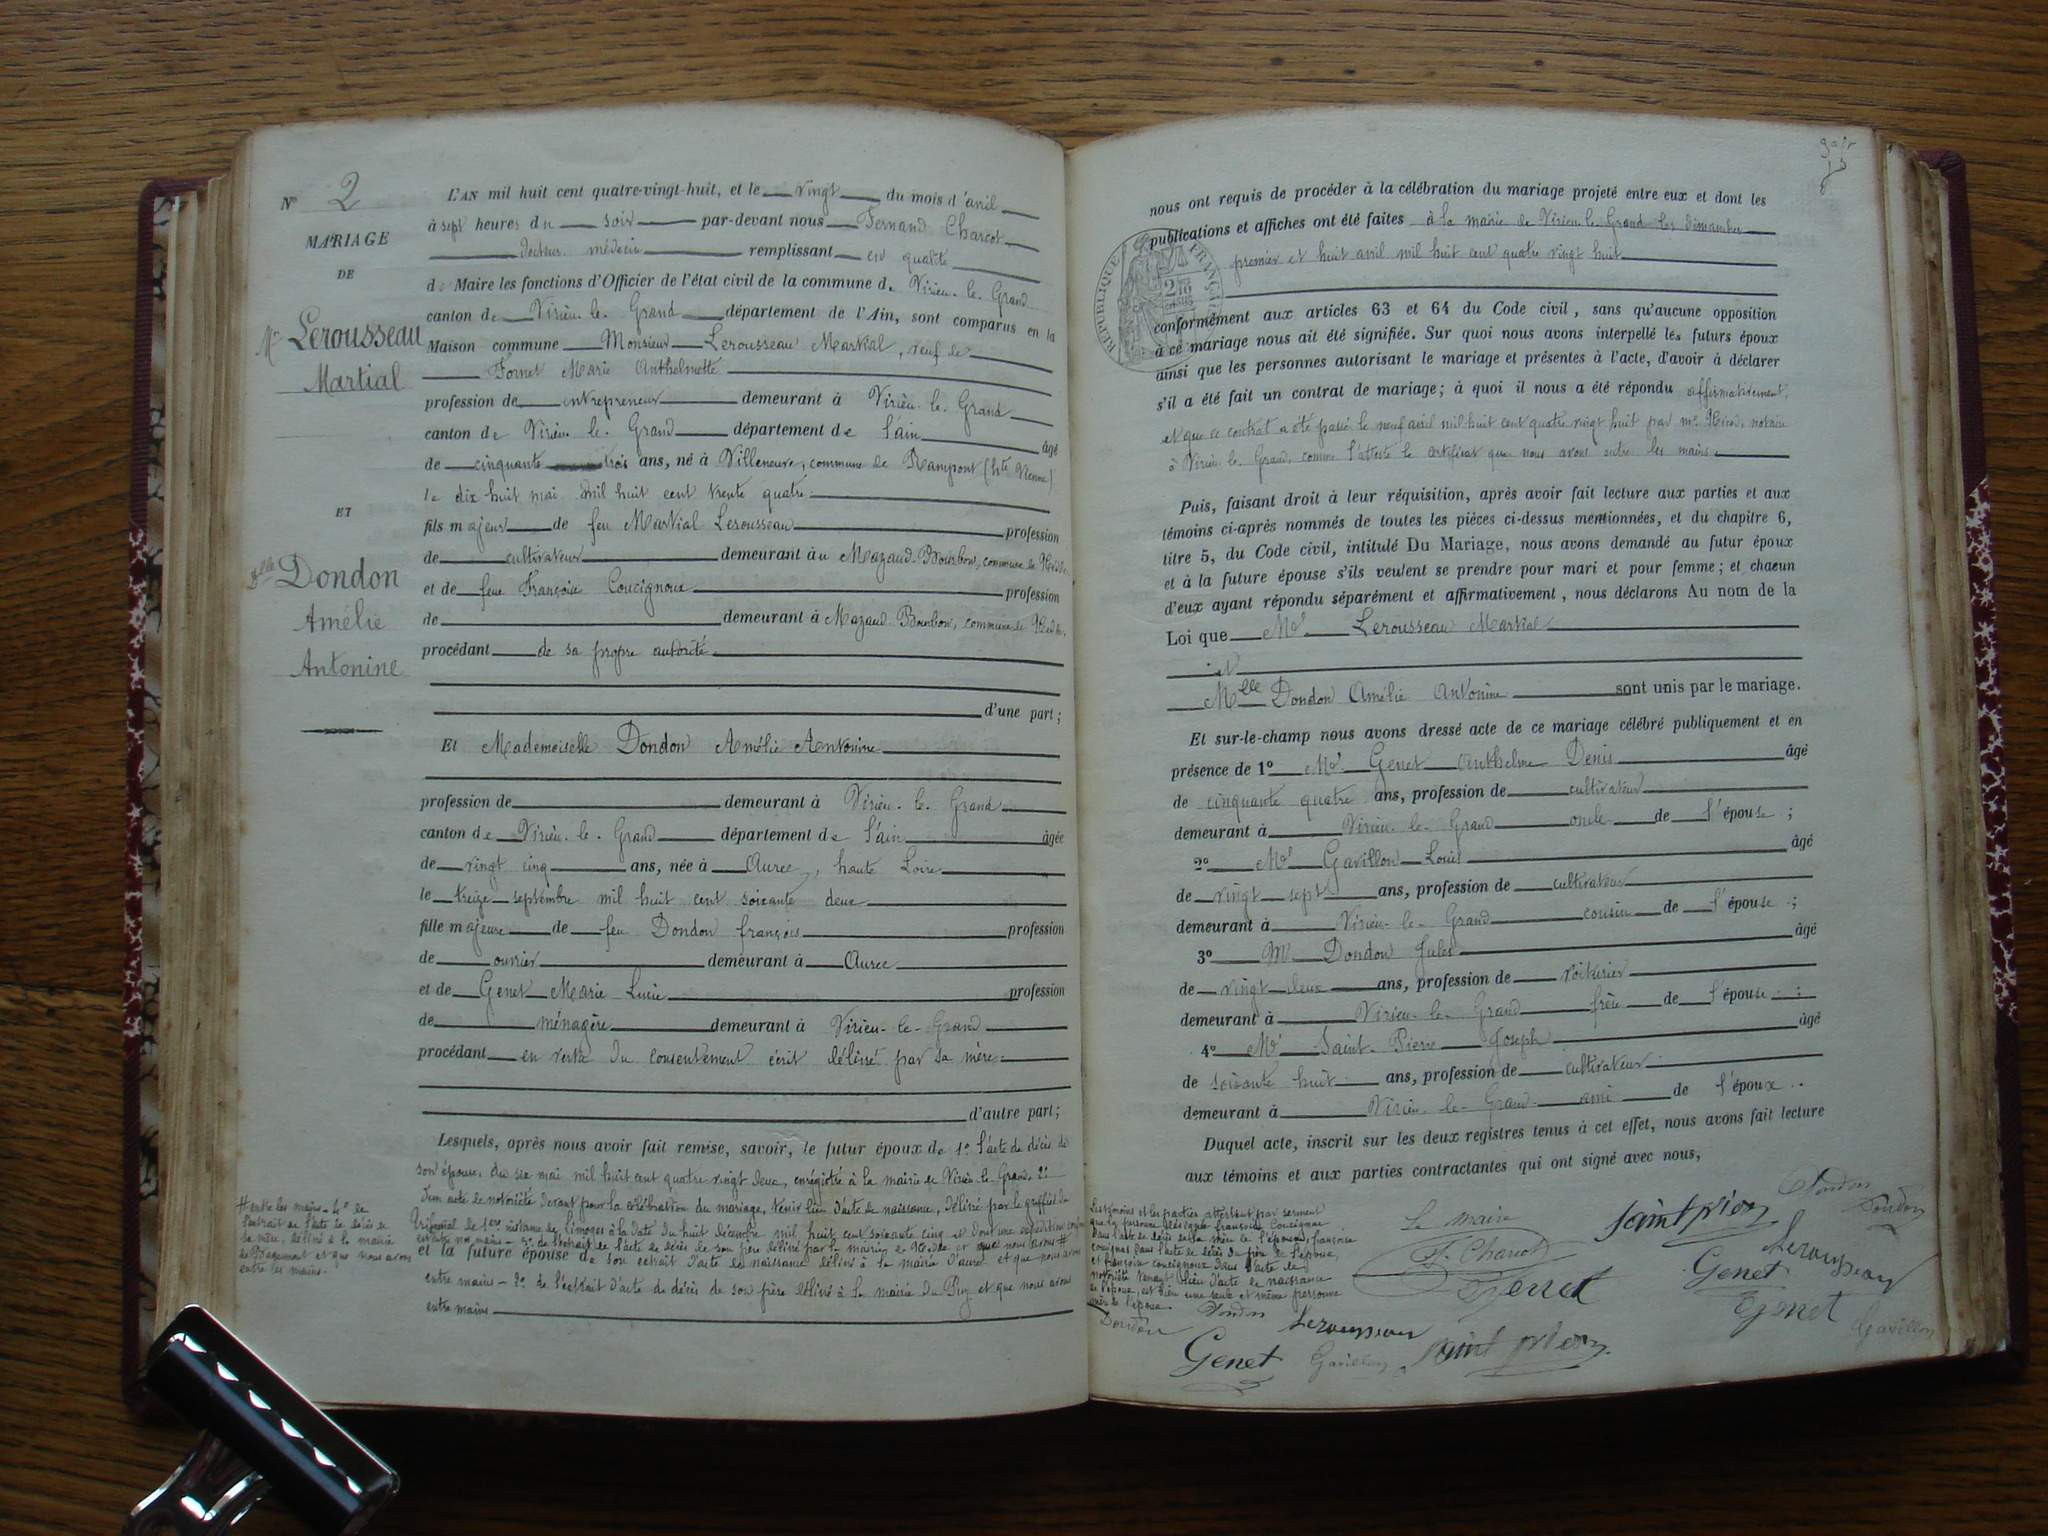 N° 2
MARIAGE
DE
Mr Lerousseau
Martial
ET
Dlle Dondon
Amélie
Antonine
L'AN mil huit cent quatre-vingt-huit, et le vingt du mois d'avril
à sept heures du soir par-devant nous Fernand Charcot
Docteur médecin remplissant en qualité
de Maire les fonctions d'Officier de l'état civil de la commune de Virieu-le-Grand
canton de Virieu-le-Grand département de l'Ain, sont comparus en la
Maison commune Monsieur Lerousseau Martial, veuf de
Fornet Marie Anthelmette
profession de entrepreneur demeurant à Virieu-le-Grand
canton de Virieu-le-Grand département de l'ain âgé
de cinquante trois ans, né à Villeneuve, commune de Rampont (hte Vienne)
le dix huit mai mil huit cent trente quatre
fils majeur de feu Martial Lerousseau profession
de cultivateur demeurant au Mazaud-Bourbon, commune de
et de feue Françoise Coucignoux profession
de demeurant à Mazaud Bourbon, commune de
procédant de sa propre autorité
d'une part;
Et Mademoiselle Dondon Amélie Antonine
profession de demeurant à Virieu-le-Grand
canton de Virieu-le-Grand département de l'ain âgée
de vingt cinq ans, née à Aurec, haute Loire
le treize septembre mil huit cent soixante deux
fille majeure de feu Dondon françois profession
de ouvrier demeurant à Aurec
et de Genet Marie Lucie profession
de ménagère demeurant à Virieu-le-Grand
procédant en vertu du consentement écrit délivré par sa mère
d'autre part;
Lesquels, après nous avoir fait remise, savoir, le futur époux de 1° l'acte de décès de
son épouse, du six mai mil huit cent quatre vingt deux, enregistré à la mairie de Virieu-le-Grand, 2°
d'un acte de notoriété devant pour la célébration du mariage, tenir lieu d'acte de naissance, délivré par le greffier du
tribunal de 1ere instance de limoges à la date du huit décembre mil huit cent soixante cinq et dont une expédition
entre nos mains - 3° de l'extrait de l'acte de décès de son père délivré par la mairie de et que nous avons #
et la future épouse de son extrait d'acte de naissance délivré à la mairie d'aurec et que nous avons
entre mains - 2° de l'extrait d'acte de décès de son père délivré à la mairie du Puy et que nous avons
entre mains
# entre les mains - 4° de
l'extrait de l'acte de décès de
sa mère, délivré à la mairie
de et que nous avons
entre les mains.
nous ont requis de procéder à la célébration du mariage projeté entre eux et dont les
publications et affiches ont été faites à la mairie de Virieu-le-Grand les dimanches
premier et huit avril mil huit cent quatre vingt huit
RÉPUBLIQUE FRANÇAISE
conformément aux articles 63 et 64 du Code civil, sans qu'aucune opposition
à ce mariage nous ait été signifiée. Sur quoi nous avons interpellé les futurs époux
ainsi que les personnes autorisant le mariage et présentes à l'acte, d'avoir à déclarer
s'il a été fait un contrat de mariage; à quoi il nous a été répondu affirmativement,
et que ce contrat a été passé le neuf avril mil huit cent quatre vingt huit par me notaire
à Virieu-le-Grand, comme l'atteste le certificat que nous avons entre les mains
Puis, faisant droit à leur réquisition, après avoir fait lecture aux parties et aux
témoins ci-après nommés de toutes les pièces ci-dessus mentionnées, et du chapitre 6,
titre 5, du Code civil, intitulé Du Mariage, nous avons demandé au futur époux
et à la future épouse s'ils veulent se prendre pour mari et pour femme; et chacun
d'eux ayant répondu séparément et affirmativement, nous déclarons Au nom de la
Loi que Mr Lerousseau Martial
et
Melle Dondon Amélie Antonine sont unis par le mariage.
Et sur-le-champ nous avons dressé acte de ce mariage célébré publiquement et en
présence de 1° Mr Genet Anthelme Denis âgé
de cinquante quatre ans, profession de cultivateur
demeurant à Virieu-le-Grand oncle de l'épouse;
2° Mr Gavillon Louis âgé
de vingt sept ans, profession de cultivateur
demeurant à Virieu-le-Grand cousin de l'épouse;
3° Mr Dondon Jules âgé
de vingt deux ans, profession de voiturier
demeurant à Virieu-le-Grand frère de l'épouse;
4° Mr Saint-Pierre Joseph âgé
de soixante huit ans, profession de cultivateur
demeurant à Virieu-le-Grand ami de l'époux.
Duquel acte, inscrit sur les deux registres tenus à cet effet, nous avons fait lecture
aux témoins et aux parties contractantes qui ont signé avec nous,
Les témoins et les parties attestent par serment
que la personne désignée françoise Coucignac
dans l'acte de décès de la mère de l'époux, françoise
coucignas dans l'acte de décès du père de l'époux,
et françoise coucignoux dans l'acte de
notoriété tenant lieu d'acte de naissance
de l'époux, est bien une seule et même personne
mère de l'époux.
Le Maire
F. Charcot
Dondon
Dondon
Lerousseau
Genet
Genet
Gavillon
Dondon
Dondon
Lerousseau
Genet
Gavillon